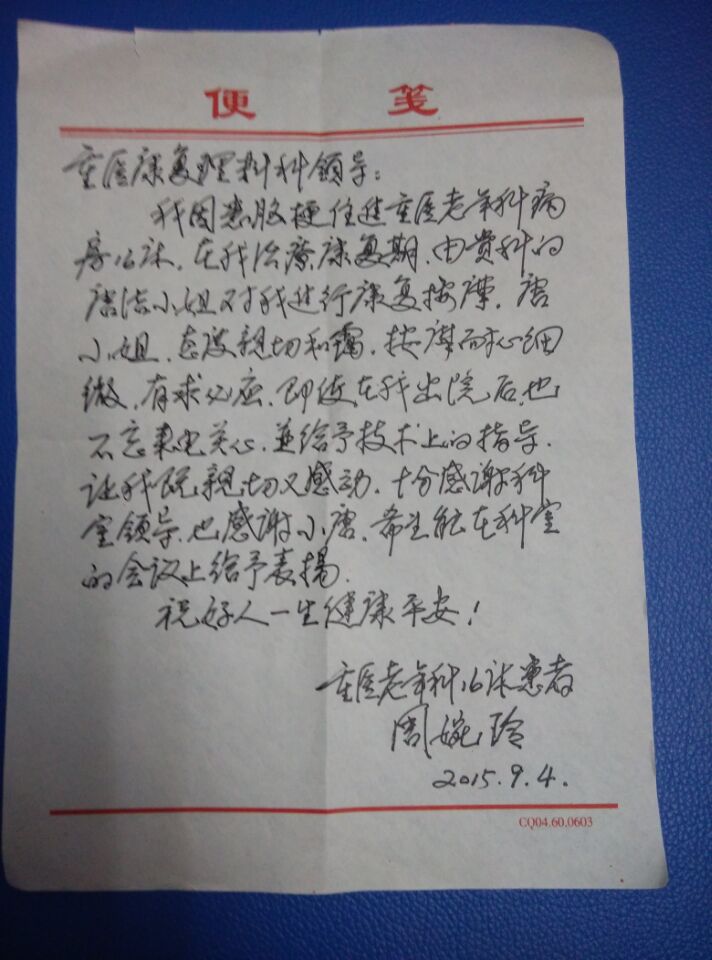 便 笺
重医康复理疗科领导:
我因患脑梗住进重医老年科病
房16床,在我治疗康复期,由贵科的
唐洁小姐对我进行康复按摩,唐
小姐,态度親切和蔼,按摩耐心细
微,有求必应,即使在我出院后,也
不忘来电关心,並给予技术上的指导,
让我既親切又感动,十分感谢科
室领导,也感谢小唐,希望能在科室
的会议上给予表揚.
祝好人一生健康平安!
重医老年科16床患者
周婉玲
2015.9.4.
CQ04.60.0603